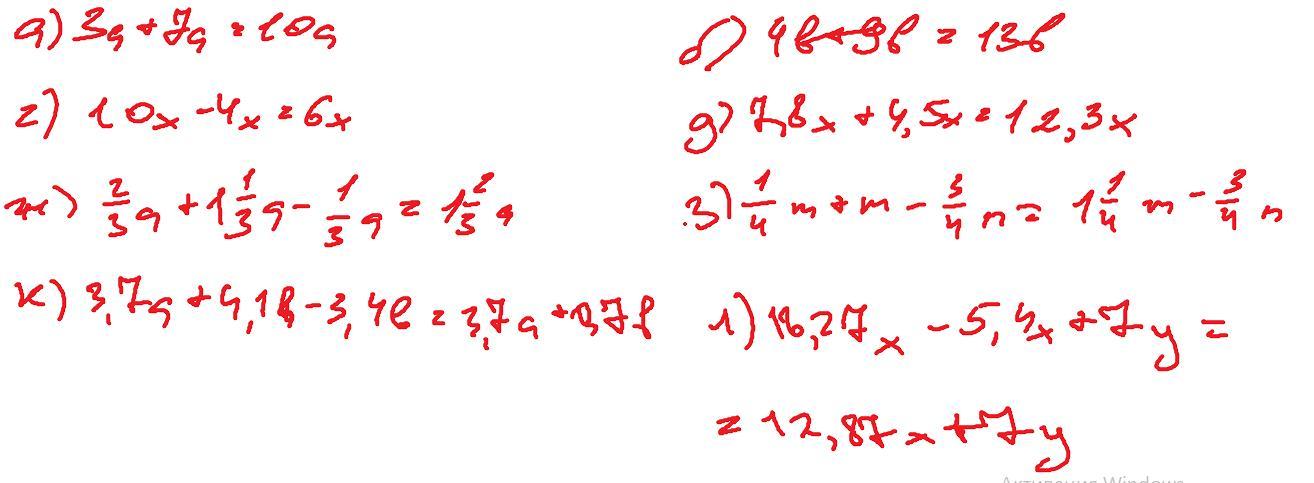 а) 3a + 7a = 10a
б) 4b + 9b = 13b
г) 10x - 4x = 6x
д) 7,8x + 4,5x = 12,3x
ж) 2/3 a + 1 1/3 a - 1/3 a = 1 2/3 a
з) 1/4 m + m - 3/4 n = 1 1/4 m - 3/4 n
к) 3,7a + 4,1b - 3,4b = 3,7a + 0,7b
л) 18,27x - 5,4x + 7y =
= 12,87x + 7y
Активация Windows